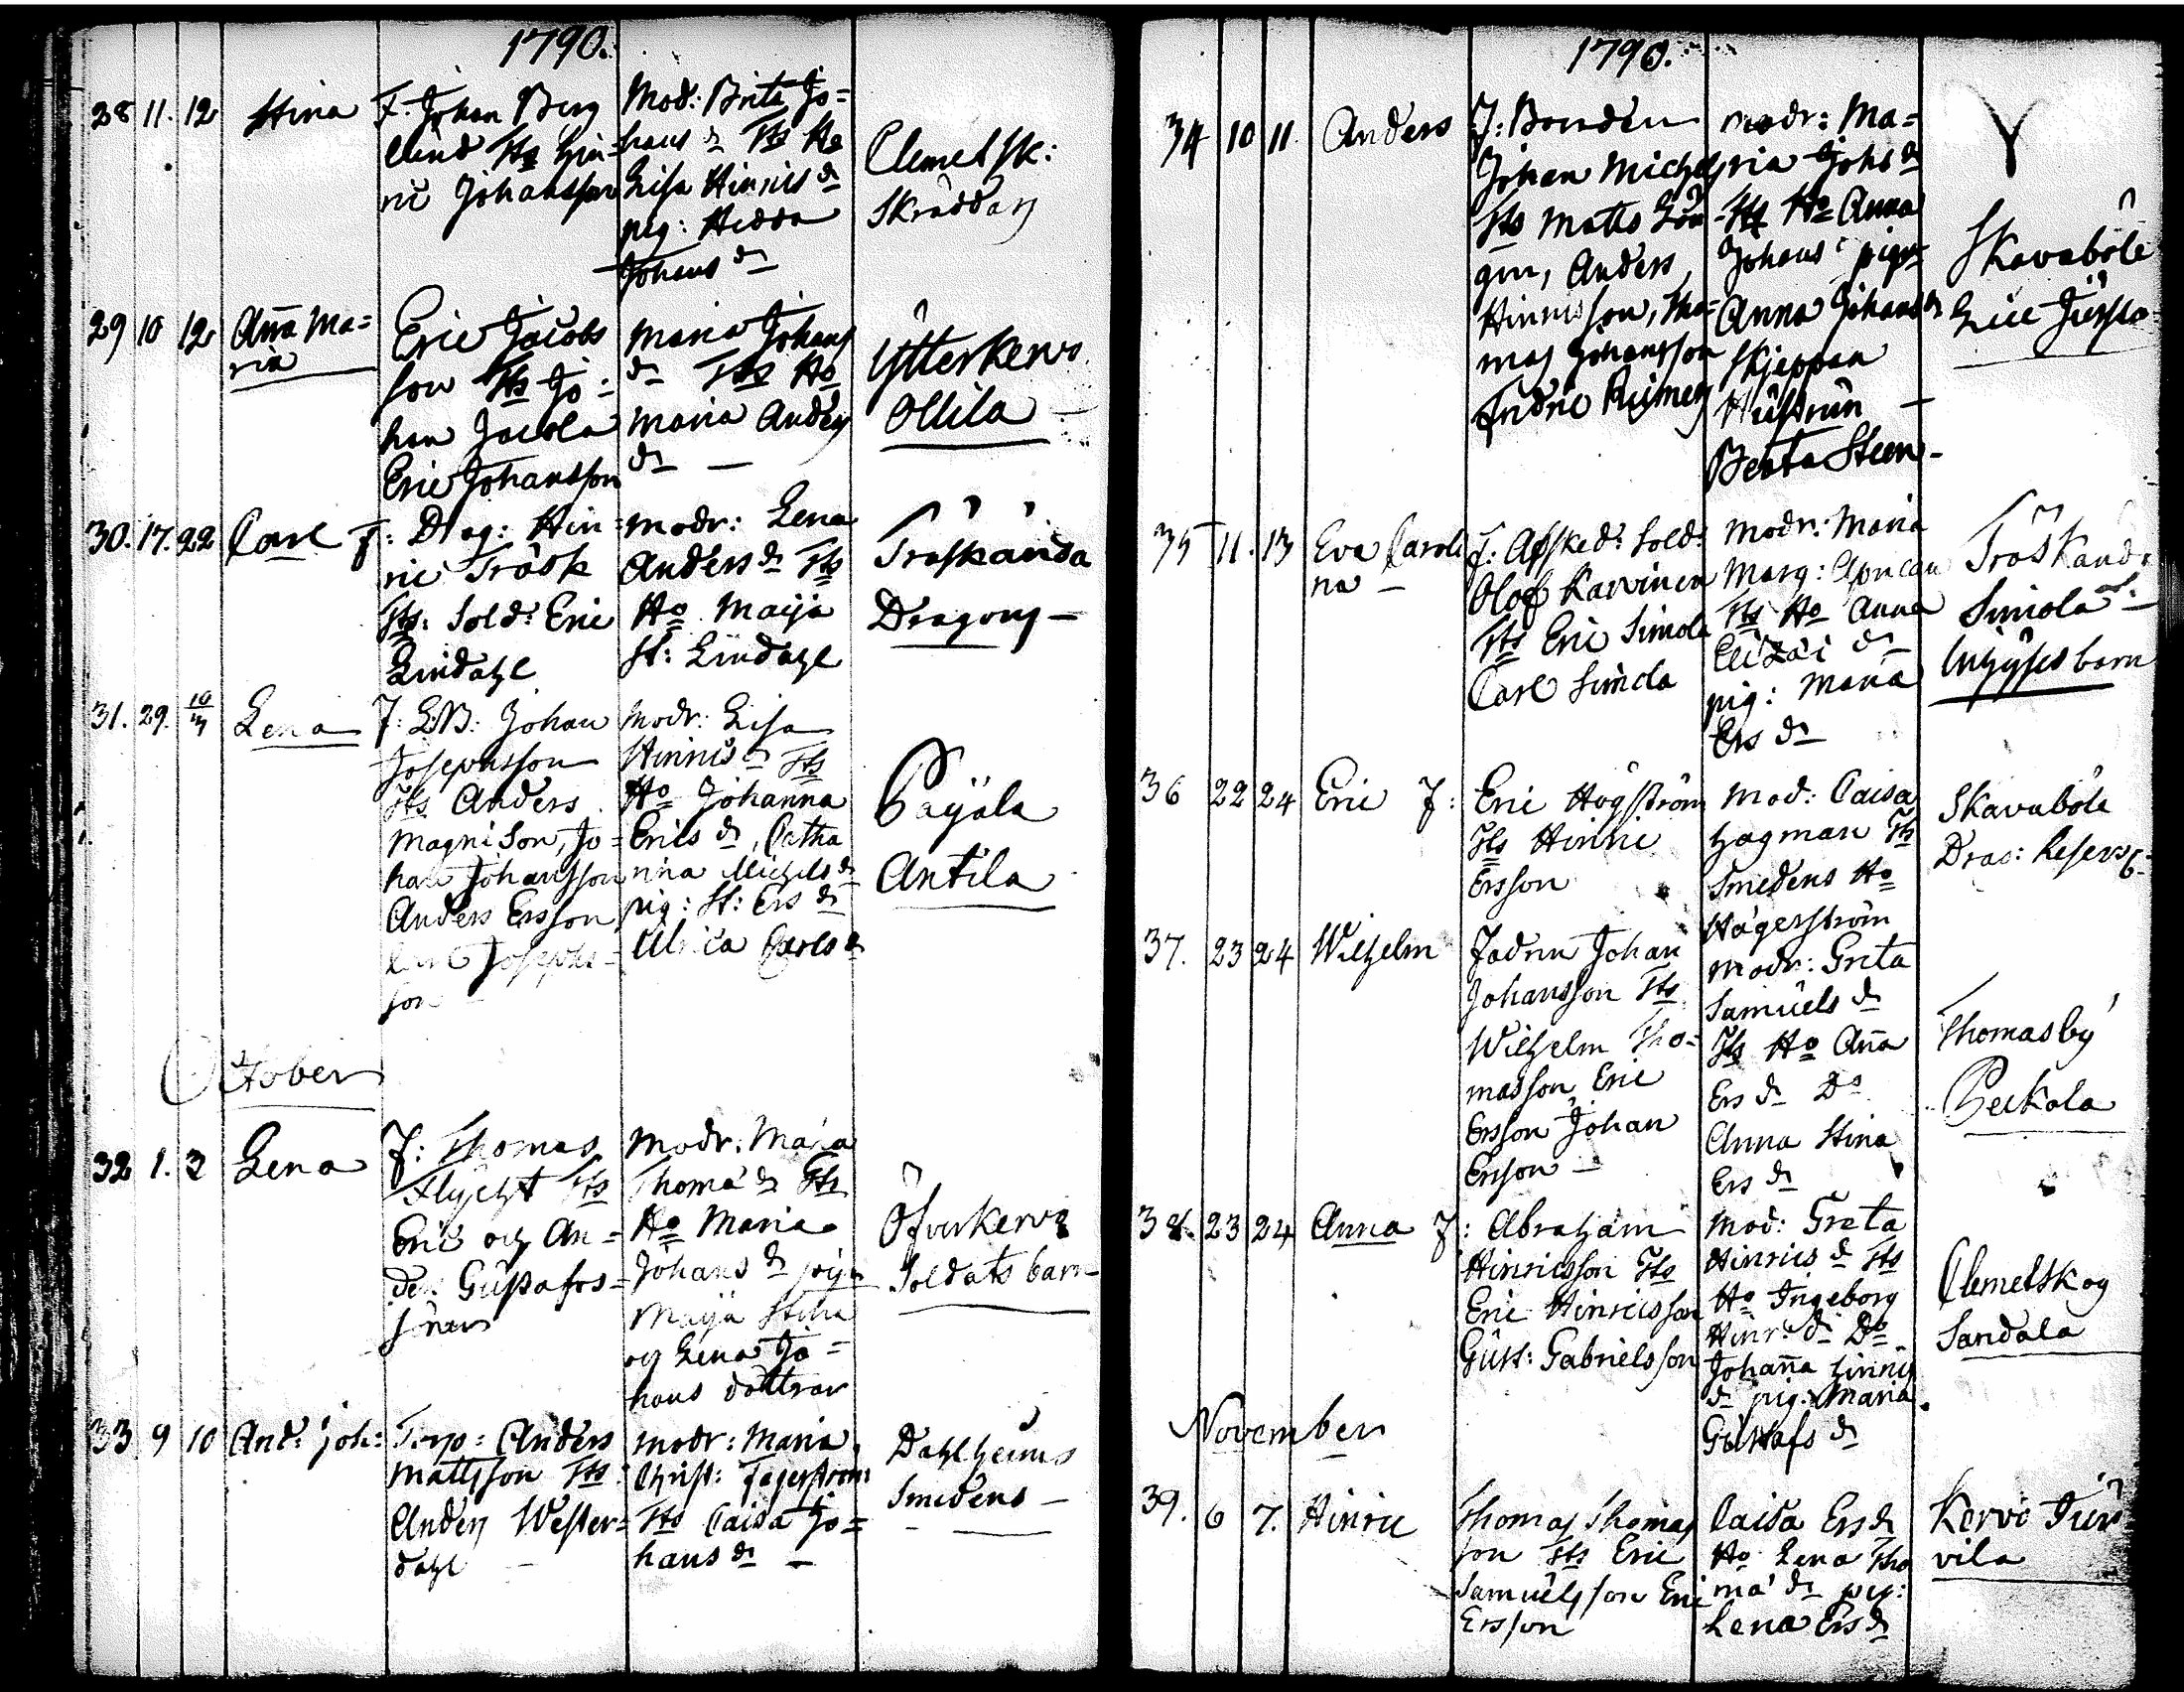 1790.
28 11. 12 Stina
F. Johan Berg
lund Tts Hin=
ric Johansson
Mod: Brita Jo=
hans dr Tts Ho
Lisa Hinrics dr
pig: Hedda
Johans dr
Clemetsk:
Skräddars
29 10 12 Aña Ma=
ria
Eric Jacobs
son Tts Jo=
han Jacola
Eric Johansson
Maria Johans
dr Tts Ho
Maria Anders
dr —
Ytterkervo
Ollila
30. 17. 22 Carl
F: Drag: Hin=
ric Träsk
Tts: Sold: Eric
Lindahl
modr: Lena
Anders dr Tts
Ho Maija
St: Lindahl
Träskända
Dragons —
31. 29. Lena
F: LB: Johan
Josephsson
Tts Anders
Magnison, Jo=
han Johansson
Anders Ersson
Josephs=
son
modr: Lisa
Hinrics dr Tts
Ho Johanna
Erics dr, Catha
rina Michels dr
pig: St: Ers dr
Ulrica Carls dr
Paijala
Antila
October
32 1. 3 Lena
F: Thomas
Flycht Tts
Eric och An=
ders Gustafs=
söner
Modr: Maria
Thoma dr Tts
Ho Maria
Johans dr pig
Maija Stina
och Lena Jo=
hans döttrar
Öfverkervo
Soldats barn
33 9 10 And: Joh:
Torp: Anders
Mattsson Tts
Anders Wester=
dahl
modr: Maria
Christ: Fagerström
Tts Caisa Jo=
hans dr —
Dahlheims
Smedens —
1790.
34 10 11 Anders
F: Bonden
Johan Michels
Tts Matts
Anders
Hinricsson, Tho=
mas Johansson
Fredric
modr: Ma=
ria Johs dr
Tts Ho Anna
Johans: pigor
Anna Johans dr
Skjeppan
Hustrun —
Beata Steen
Skavaböle
35 11. 13 Eva Caroli
na —
F: Afsked: Sold:
Olof Karvinen
Tts Eric Simola
Carl Simola
Modr: Maria
Marg:
Tts Ho Anna
dr
pig: Maria
Ers dr
Träskand:
Simola
Inhyses barn
36 22 24 Eric
F: Eric Högström
Tts Hinric
Ersson
Mod: Caisa
Hagman Tts
Smedens Ho
Hägerström
Skavaböle
Drag:
37. 23 24 Wilhelm
Fadren Johan
Johansson Tts
Wilhelm Tho=
masson, Eric
Ersson Johan
Ersson —
Modr: Greta
Samuels dr
Tts Ho Aña
Ers dr Do
Anna Stina
Ers dr
Thomasby
Peckola
38. 23 24 Anna
F: Abraham
Hinricsson Tts
Eric Hinricsson
Gust: Gabrielsson
Mod: Greta
Hinrics dr Tts
Ho Ingeborg
Hinr: dr Do
Johaña Hinrics
dr pig: Maria
Gustafs dr
Clemetskog
Sandala
November
39. 6 7. Hinric
Thomas Thomas
son Tts Eric
Samuelsson Eric
Ersson
Caisa Ers dr
Ho Lena Tho
ma dr pig:
Lena Ers dr
Kervo
vila